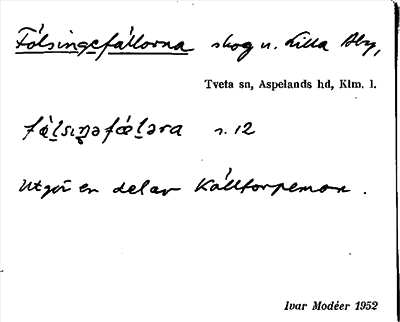 Fölsingefällorna skog u. Lilla Åby,
Tveta sn, Aspelands hd, Klm. l.
s. 12
Utgör en del av Källtorpemon.
Ivar Modéer 1952